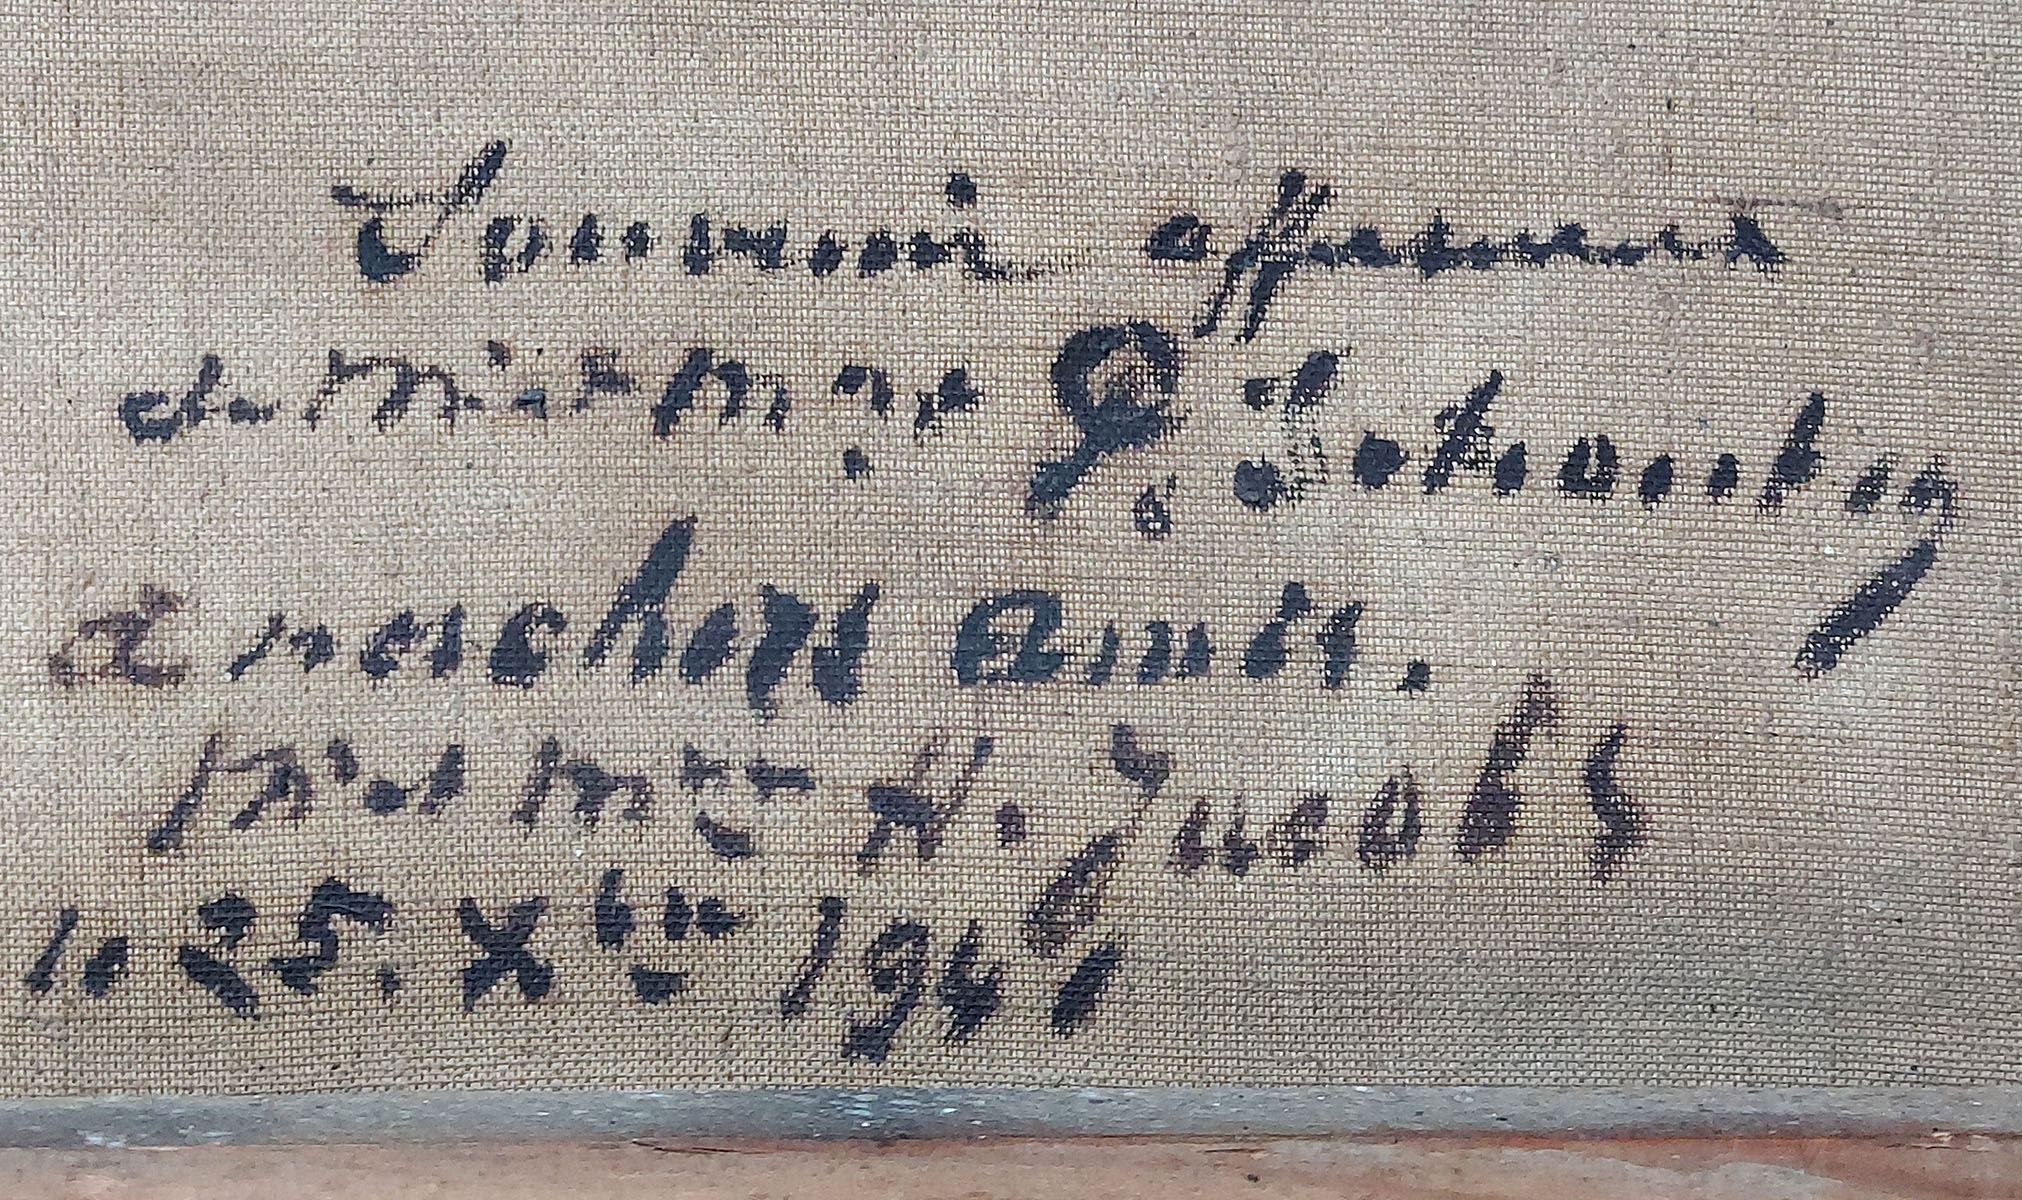 Souvenir affectueux
de Mr et Mme G.
à nos chers amis.
Mr et Mme H. Jacobs
le 25. Xbre 1941